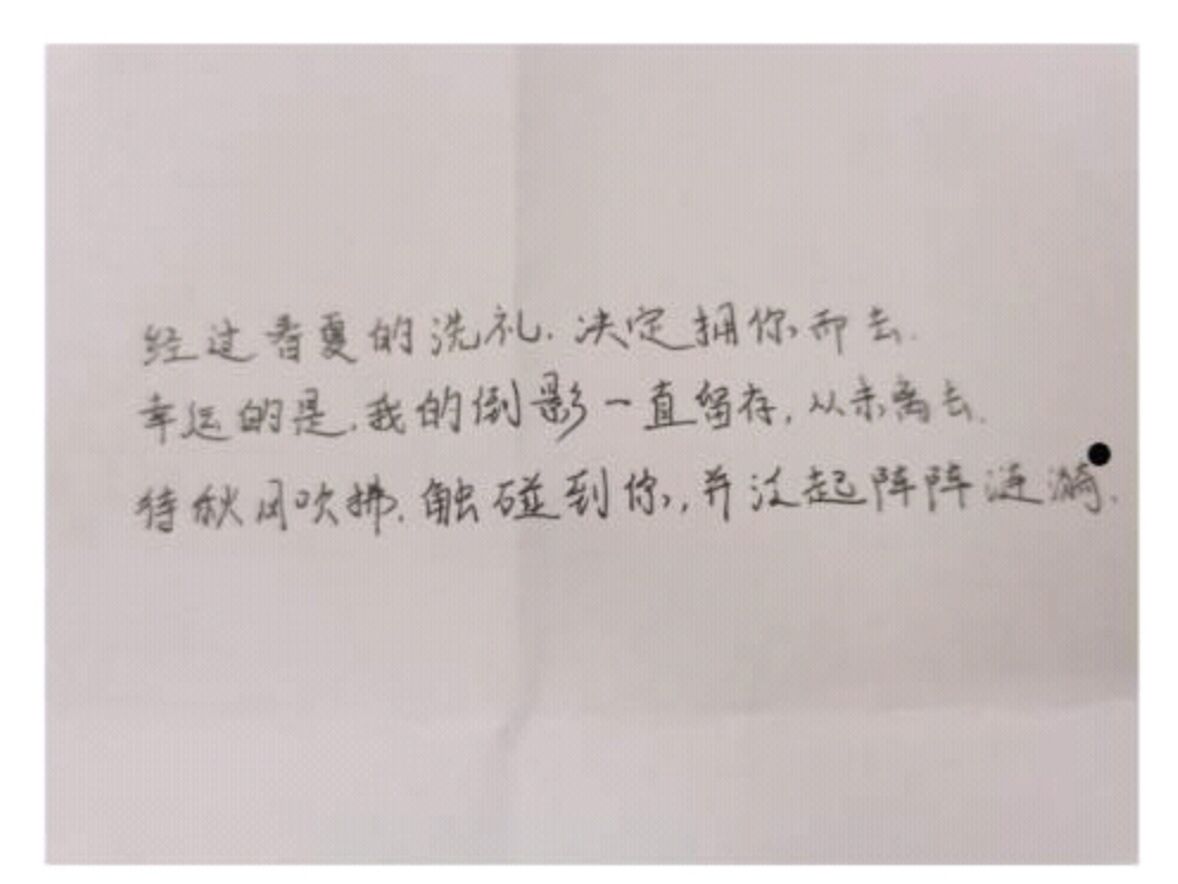 经过春夏的洗礼.决定拥你而去.
幸运的是,我的倒影一直留存,从未离去.
待秋风吹拂.触碰到你,并泛起阵阵涟漪.